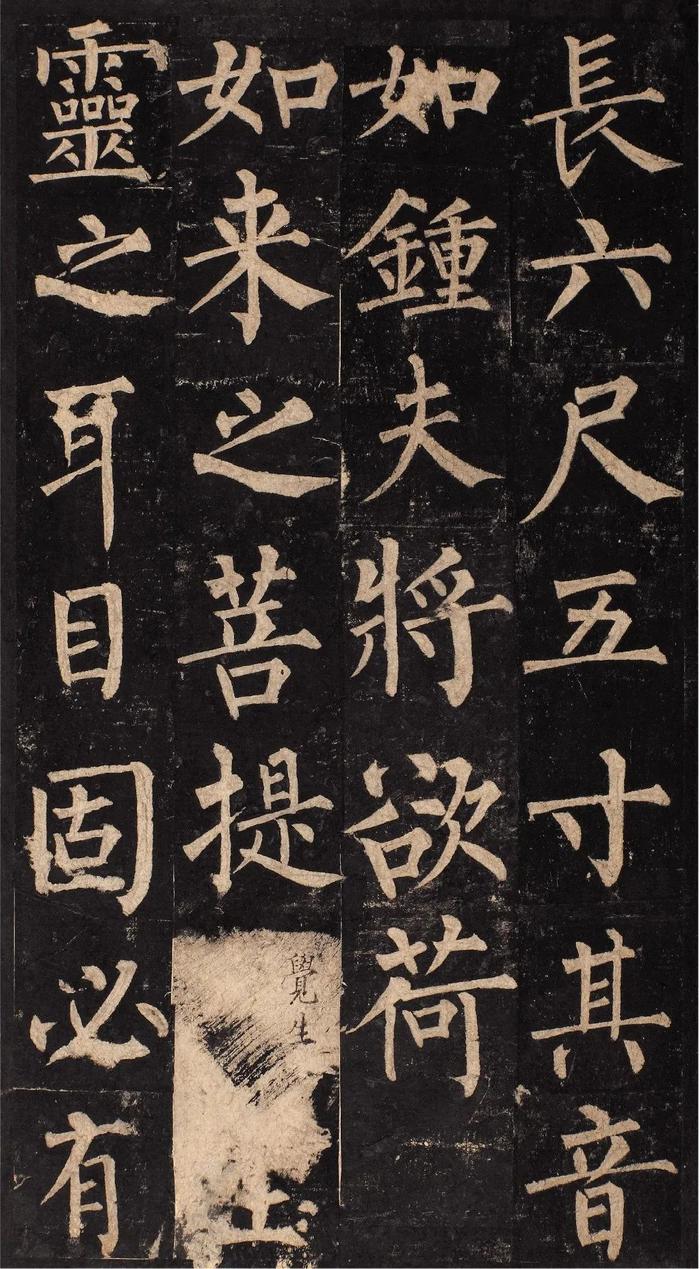 長六尺五寸其音
如鍾夫將欲荷
如来之菩提
覺生
靈之耳目固必有